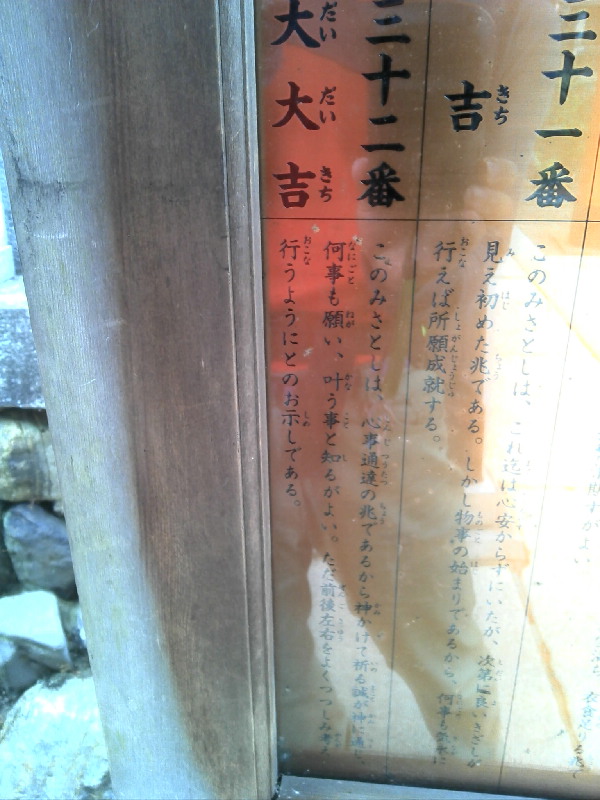 三十一番
吉
このみさとしは、これ迄は心安からずにいたが、次第に良いきざしが
見え初めた兆である。しかし物事の始まりであるから、何事も
行えば所願成就する。
三十二番
大大吉
このみさとしは、心事通達の兆であるから神かけて祈る誠が神に通じ、
何事も願い、叶う事と知るがよい。ただ前後左右をよくつつしみ
行うようにとのお示しである。